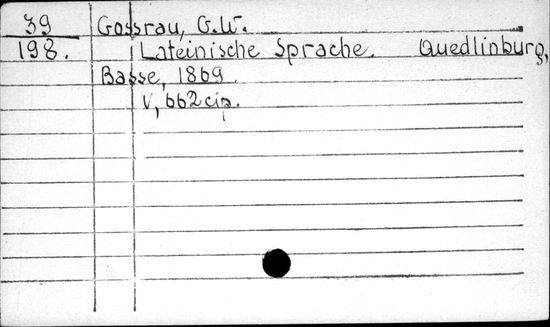 39 Gossrau, G.W.
198. Lateinische Sprache. Quedlinburg,
Basse, 1869.
V, 662 cip.